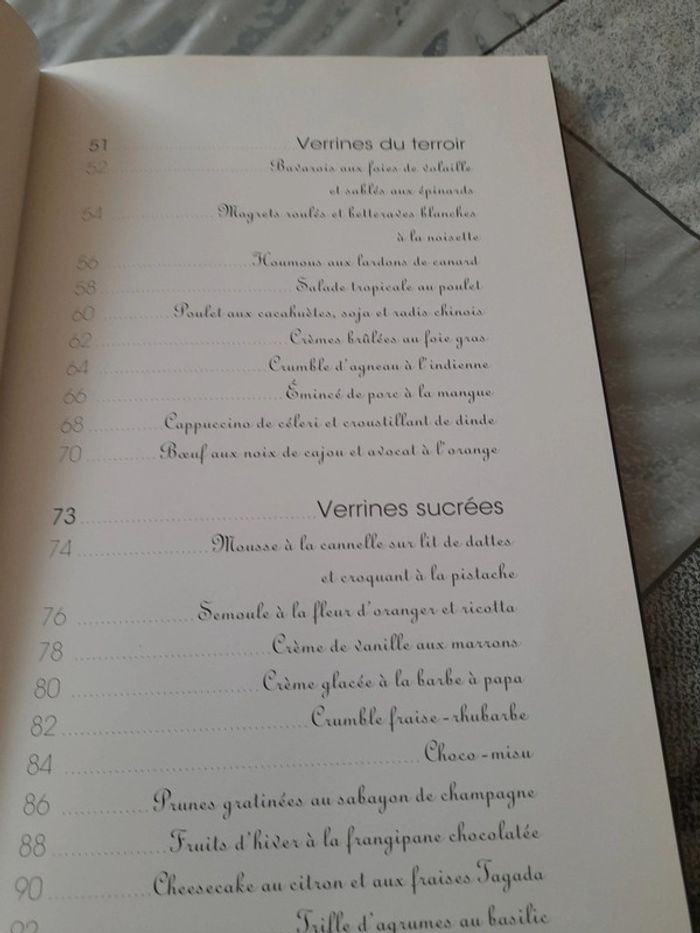 51 Verrines du terroir
52 Bavarois aux foies de volaille
et sablés aux épinards
54 Magrets roulés et betteraves blanches
à la noisette
56 Houmous aux lardons de canard
58 Salade tropicale au poulet
60 Poulet aux cacahuètes, soja et radis chinois
62 Crèmes brûlées au foie gras
64 Crumble d'agneau à l'indienne
66 Émincé de porc à la mangue
68 Cappuccino de céleri et croustillant de dinde
70 Bœuf aux noix de cajou et avocat à l'orange
73 Verrines sucrées
74 Mousse à la cannelle sur lit de dattes
et croquant à la pistache
76 Semoule à la fleur d'oranger et ricotta
78 Crème de vanille aux marrons
80 Crème glacée à la barbe à papa
82 Crumble fraise-rhubarbe
84 Choco-misu
86 Prunes gratinées au sabayon de champagne
88 Fruits d'hiver à la frangipane chocolatée
90 Cheesecake au citron et aux fraises Tagada
92 Trifle d'agrumes au basilic